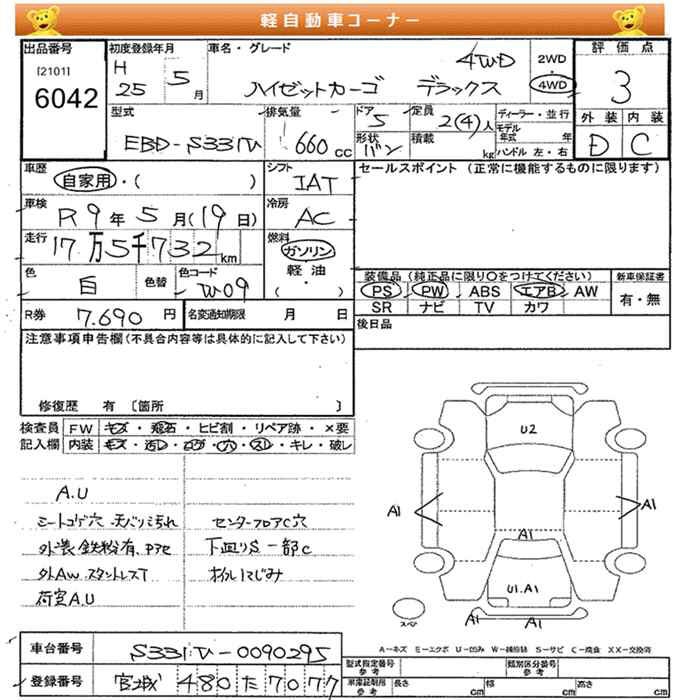 軽自動車コーナー
出品番号 初度登録年月 車名・グレード 評価点
[2101] H 25 5月 ハイゼットカーゴ デラックス 4WD 2WD・4WD 3
6042
型式 排気量 ドア 定員 ディーラー・並行 外装 内装
EBD-S331V 660cc 5 2(4)人 モデル年式 年 D C
形状 バン 積載 kg ハンドル 左・右
車歴 シフト セールスポイント (正常に機能するものに限ります)
自家用・( ) IAT
車検 冷房
R9年5月(19日) AC
走行 燃料
17万5千732km ガソリン
軽油
色 白 色替 色コード W09 ( )
装備品(純正品に限り○をつけてください) 新車保証書
PS PW ABS エアB AW 有・無
SR ナビ TV カワ
R券 7.690円 名変通知期限 月 日 後日品
注意事項申告欄(不具合内容等は具体的に記入して下さい)
修復歴 有 [箇所 ]
検査員 FW キズ・飛石・ヒビ割・リペア跡・×要
記入欄 内装 キズ・汚レ・コゲ・穴・スレ・キレ・破レ
U2
A.U
シートコゲ穴 天バリ汚れ センターフロアC穴
外装鉄粉有 下廻りS一部C
外AW スタットレスT オイルにじみ
荷室A.U
A1 A1
A1
U1.A1
A1 A1
スペア
A-キズ M-エクボ U-凹み W-補修跡 S-サビ C-腐食 XX-交換済
車台番号 S331V-0090295
型式指定番号 参考 類別区分番号 参考
登録番号 宮城 480 た 7077
車庫証明用 参考 長さ cm 幅 cm 高さ cm